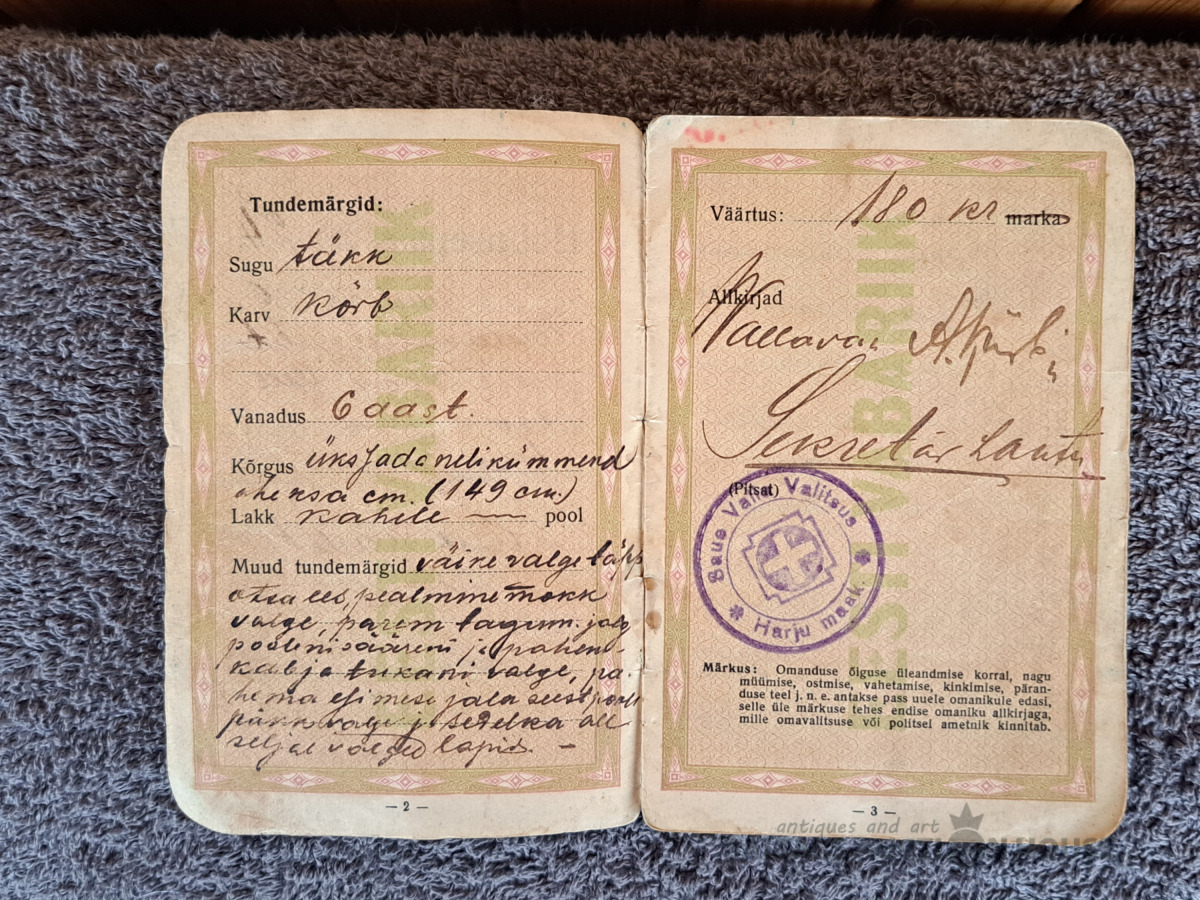 Tundemärgid:
Sugu täkk
Karv kõrb
Vanadus 6 aast.
Kõrgus üksjada nelikümmend
üheksa cm. (149 cm.)
Lakk kahele — pool
Muud tundemärgid väike valge läpp
otsa ees, pealmine mokk
valge, parem tagum. jalg
poolenisääreni ja pahem
kabja valge, pa-
hema esimese jala seest poolt
valge ja sedelka all
seljal valged lapid. —
— 2 —
EESTI VABARIIK
Väärtus: 180 kr marka
Allkirjad
Vallavan
Sekretär
(Pitsat)
Saue Valla Valitsus
Harju maak.
EESTI VABARIIK
Märkus: Omanduse õiguse üleandmise korral, nagu
müümise, ostmise, vahetamise, kinkimise, päran-
duse teel j. n. e. antakse pass uuele omanikule edasi,
selle üle märkuse tehes endise omaniku allkirjaga,
mille omavalitsuse või politsei ametnik kinnitab.
— 3 —
antiques and art